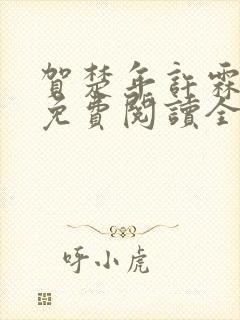 賀楚年許霖
免費閱讀全
呼小虎